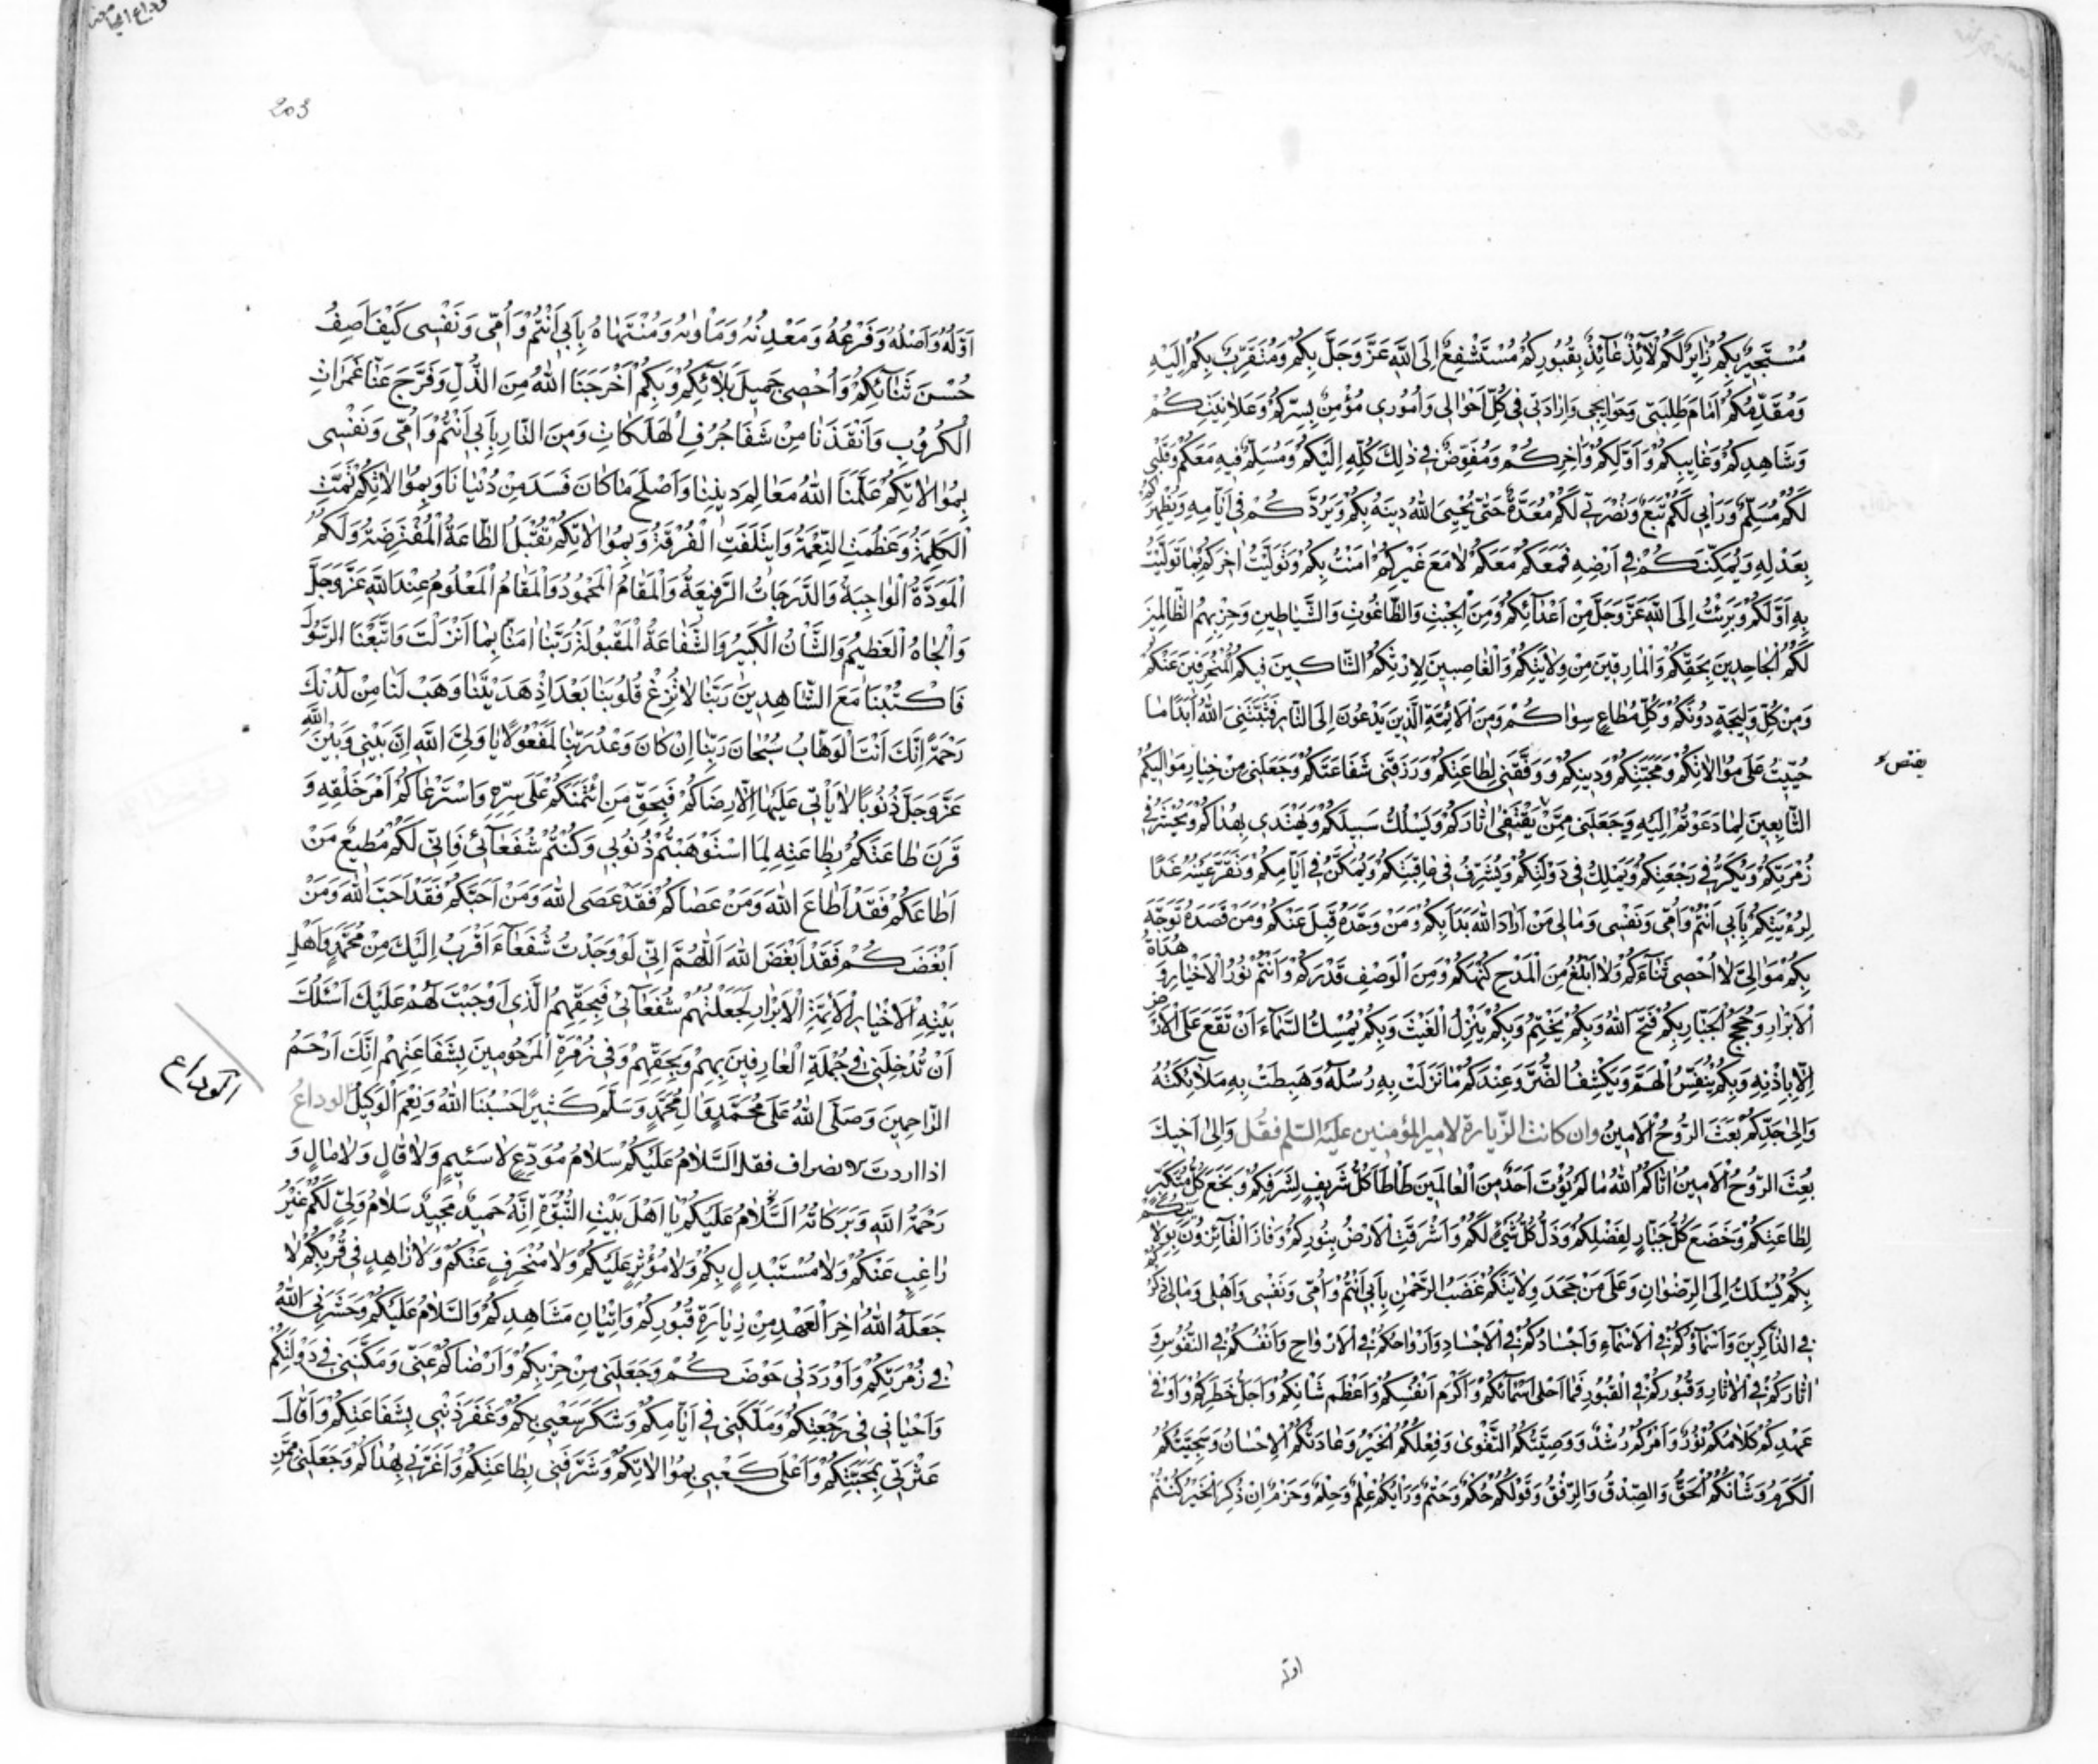 مُسْتَجِيرٌ بِكُمْ زَائِرٌ لَكُمْ لَائِذٌ عَائِذٌ بِقُبُورِكُمْ مُسْتَشْفِعٌ إِلَى اللَّهِ عَزَّ وَجَلَّ بِكُمْ وَمُتَقَرِّبٌ بِكُمْ إِلَيْهِ
وَمُقَدِّمُكُمْ أَمَامَ طَلِبَتِي وَحَوَائِجِي وَإِرَادَتِي فِي كُلِّ أَحْوَالِي وَأُمُورِي مُؤْمِنٌ بِسِرِّكُمْ وَعَلَانِيَتِكُمْ
وَشَاهِدِكُمْ وَغَايِبِكُمْ وَأَوَّلِكُمْ وَآخِرِكُمْ وَمُفَوِّضٌ فِي ذٰلِكَ كُلِّهِ إِلَيْكُمْ وَمُسَلِّمٌ فِيهِ مَعَكُمْ وَقَلْبِي
لَكُمْ مُسَلِّمٌ وَرَأْيِي لَكُمْ تَبَعٌ وَنُصْرَتِي لَكُمْ مُعَدَّةٌ حَتَّى يُحْيِيَ اللَّهُ دِينَهُ بِكُمْ وَيَرُدَّكُمْ فِي أَيَّامِهِ وَيُظْهِرَكُمْ
بِعَدْلِهِ وَيُمَكِّنَكُمْ فِي أَرْضِهِ فَمَعَكُمْ مَعَكُمْ لَا مَعَ غَيْرِكُمْ آمَنْتُ بِكُمْ وَتَوَلَّيْتُ آخِرَكُمْ بِمَا تَوَلَّيْتُ
بِهِ أَوَّلَكُمْ وَبَرِئْتُ إِلَى اللَّهِ عَزَّ وَجَلَّ مِنْ أَعْدَائِكُمْ وَمِنَ الْجِبْتِ وَالطَّاغُوتِ وَالشَّيَاطِينِ وَحِزْبِهِمُ الظَّالِمِينَ
لَكُمُ الْجَاحِدِينَ بِحَقِّكُمْ وَالْمَارِقِينَ مِنْ وَلَايَتِكُمْ وَالْغَاصِبِينَ لِإِرْثِكُمُ الشَّاكِّينَ فِيكُمُ الْمُنْحَرِفِينَ عَنْكُمْ
وَمِنْ كُلِّ وَلِيجَةٍ دُونَكُمْ وَكُلِّ مُطَاعٍ سِوَاكُمْ وَمِنَ الْأَئِمَّةِ الَّذِينَ يَدْعُونَ إِلَى النَّارِ فَثَبَّتَنِيَ اللَّهُ أَبَدًا مَا
حُيِّيتُ عَلَى مُوَالَاتِكُمْ وَمَحَبَّتِكُمْ وَدِينِكُمْ وَوَفَّقَنِي لِطَاعَتِكُمْ وَرَزَقَنِي شَفَاعَتَكُمْ وَجَعَلَنِي مِنْ خِيَارِ مَوَالِيكُمْ
يقتص
التَّابِعِينَ لِمَا دَعَوْتُمْ إِلَيْهِ وَجَعَلَنِي مِمَّنْ يَقْتَفِي آثَارَكُمْ وَيَسْلُكُ سَبِيلَكُمْ وَيَهْتَدِي بِهُدَاكُمْ وَيُحْشَرُ فِي
زُمْرَتِكُمْ وَيَكِرُّ فِي رَجْعَتِكُمْ وَيُمَلَّكُ فِي دَوْلَتِكُمْ وَيُشَرَّفُ فِي عَاقِبَتِكُمْ وَيُمَكَّنُ فِي أَيَّامِكُمْ وَتَقَرُّ عَيْنُهُ غَدًا
لِرُؤْيَتِكُمْ بِأَبِي أَنْتُمْ وَأُمِّي وَنَفْسِي وَمَالِي مَنْ أَرَادَ اللَّهَ بَدَأَ بِكُمْ وَمَنْ وَحَّدَهُ قَبِلَ عَنْكُمْ وَمَنْ قَصَدَهُ تَوَجَّهَ
بِكُمْ مَوَالِيَّ لَا أُحْصِي ثَنَاءَكُمْ وَلَا أَبْلُغُ مِنَ الْمَدْحِ كُنْهَكُمْ وَمِنَ الْوَصْفِ قَدْرَكُمْ وَأَنْتُمْ نُورُ الْأَخْيَارِ وَهُدَاةُ
الْأَبْرَارِ وَحُجَجُ الْجَبَّارِ بِكُمْ فَتَحَ اللَّهُ وَبِكُمْ يَخْتِمُ وَبِكُمْ يُنَزِّلُ الْغَيْثَ وَبِكُمْ يُمْسِكُ السَّمَاءَ أَنْ تَقَعَ عَلَى الْأَرْضِ
إِلَّا بِإِذْنِهِ وَبِكُمْ يُنَفِّسُ الْهَمَّ وَيَكْشِفُ الضُّرَّ وَعِنْدَكُمْ مَا نَزَلَتْ بِهِ رُسُلُهُ وَهَبَطَتْ بِهِ مَلَائِكَتُهُ
وَإِلَى جَدِّكُمْ بُعِثَ الرُّوحُ الْأَمِينُ وان كانت الزيارة لامير المؤمنين عليه السلم فقل وَإِلَى أَخِيكَ
بُعِثَ الرُّوحُ الْأَمِينُ آتَاكُمُ اللَّهُ مَا لَمْ يُؤْتَ أَحَدٌ مِنَ الْعَالَمِينَ طَأْطَأَ كُلُّ شَرِيفٍ لِشَرَفِكُمْ وَبَخَعَ كُلُّ مُتَكَبِّرٍ
لِطَاعَتِكُمْ وَخَضَعَ كُلُّ جَبَّارٍ لِفَضْلِكُمْ وَذَلَّ كُلُّ شَيْءٍ لَكُمْ وَأَشْرَقَتِ الْأَرْضُ بِنُورِكُمْ وَفَازَ الْفَائِزُونَ بِوَلَايَتِكُمْ
بِكُمْ يُسْلَكُ إِلَى الرِّضْوَانِ وَعَلَى مَنْ جَحَدَ وَلَايَتَكُمْ غَضَبُ الرَّحْمٰنِ بِأَبِي أَنْتُمْ وَأُمِّي وَنَفْسِي وَأَهْلِي وَمَالِي ذِكْرُكُمْ
فِي الذَّاكِرِينَ وَأَسْمَاؤُكُمْ فِي الْأَسْمَاءِ وَأَجْسَادُكُمْ فِي الْأَجْسَادِ وَأَرْوَاحُكُمْ فِي الْأَرْوَاحِ وَأَنْفُسُكُمْ فِي النُّفُوسِ وَ
آثَارُكُمْ فِي الْآثَارِ وَقُبُورُكُمْ فِي الْقُبُورِ فَمَا أَحْلَى أَسْمَاءَكُمْ وَأَكْرَمَ أَنْفُسَكُمْ وَأَعْظَمَ شَأْنَكُمْ وَأَجَلَّ خَطَرَكُمْ وَأَوْفَى
عَهْدَكُمْ كَلَامُكُمْ نُورٌ وَأَمْرُكُمْ رُشْدٌ وَوَصِيَّتُكُمُ التَّقْوَى وَفِعْلُكُمُ الْخَيْرُ وَعَادَتُكُمُ الْإِحْسَانُ وَسَجِيَّتُكُمُ
الْكَرَمُ وَشَأْنُكُمُ الْحَقُّ وَالصِّدْقُ وَالرِّفْقُ وَقَوْلُكُمْ حُكْمٌ وَحَتْمٌ وَرَأْيُكُمْ عِلْمٌ وَحِلْمٌ وَحَزْمٌ إِنْ ذُكِرَ الْخَيْرُ كُنْتُمْ
اوّله
203
أَوَّلَهُ وَأَصْلَهُ وَفَرْعَهُ وَمَعْدِنَهُ وَمَأْوٰيهُ وَمُنْتَهَاهُ بِأَبِي أَنْتُمْ وَأُمِّي وَنَفْسِي كَيْفَ أَصِفُ
حُسْنَ ثَنَائِكُمْ وَأُحْصِي جَمِيلَ بَلَائِكُمْ وَبِكُمْ أَخْرَجَنَا اللَّهُ مِنَ الذُّلِّ وَفَرَّجَ عَنَّا غَمَرَاتِ
الْكُرُوبِ وَأَنْقَذَنَا مِنْ شَفَا جُرُفِ الْهَلَكَاتِ وَمِنَ النَّارِ بِأَبِي أَنْتُمْ وَأُمِّي وَنَفْسِي
بِمُوَالَاتِكُمْ عَلَّمَنَا اللَّهُ مَعَالِمَ دِينِنَا وَأَصْلَحَ مَا كَانَ فَسَدَ مِنْ دُنْيَانَا وَبِمُوَالَاتِكُمْ تَمَّتِ
الْكَلِمَةُ وَعَظُمَتِ النِّعْمَةُ وَايتَلَفَتِ الْفُرْقَةُ وَبِمُوَالَاتِكُمْ تُقْبَلُ الطَّاعَةُ الْمُفْتَرَضَةُ وَلَكُمُ
الْمَوَدَّةُ الْوَاجِبَةُ وَالدَّرَجَاتُ الرَّفِيعَةُ وَالْمَقَامُ الْمَحْمُودُ وَالْمَقَامُ الْمَعْلُومُ عِنْدَ اللَّهِ عَزَّ وَجَلَّ
وَالْجَاهُ الْعَظِيمُ وَالشَّأْنُ الْكَبِيرُ وَالشَّفَاعَةُ الْمَقْبُولَةُ رَبَّنَا آمَنَّا بِمَا أَنْزَلْتَ وَاتَّبَعْنَا الرَّسُولَ
فَاكْتُبْنَا مَعَ الشَّاهِدِينَ رَبَّنَا لَا تُزِغْ قُلُوبَنَا بَعْدَ إِذْ هَدَيْتَنَا وَهَبْ لَنَا مِنْ لَدُنْكَ
رَحْمَةً إِنَّكَ أَنْتَ الْوَهَّابُ سُبْحَانَ رَبِّنَا إِنْ كَانَ وَعْدُ رَبِّنَا لَمَفْعُولًا يَا وَلِيَّ اللَّهِ إِنَّ بَيْنِي وَبَيْنَ اللَّهِ
عَزَّ وَجَلَّ ذُنُوبًا لَا يَأْتِي عَلَيْهَا إِلَّا رِضَاكُمْ فَبِحَقِّ مَنِ ائْتَمَنَكُمْ عَلَى سِرِّهِ وَاسْتَرْعَاكُمْ أَمْرَ خَلْقِهِ وَ
قَرَنَ طَاعَتَكُمْ بِطَاعَتِهِ لَمَّا اسْتَوْهَبْتُمْ ذُنُوبِي وَكُنْتُمْ شُفَعَائِي فَإِنِّي لَكُمْ مُطِيعٌ مَنْ
أَطَاعَكُمْ فَقَدْ أَطَاعَ اللَّهَ وَمَنْ عَصَاكُمْ فَقَدْ عَصَى اللَّهَ وَمَنْ أَحَبَّكُمْ فَقَدْ أَحَبَّ اللَّهَ وَمَنْ
أَبْغَضَكُمْ فَقَدْ أَبْغَضَ اللَّهَ اللَّهُمَّ إِنِّي لَوْ وَجَدْتُ شُفَعَاءَ أَقْرَبَ إِلَيْكَ مِنْ مُحَمَّدٍ وَأَهْلِ
بَيْتِهِ الْأَخْيَارِ الْأَئِمَّةِ الْأَبْرَارِ لَجَعَلْتُهُمْ شُفَعَائِي فَبِحَقِّهِمُ الَّذِي أَوْجَبْتَ لَهُمْ عَلَيْكَ أَسْئَلُكَ
أَنْ تُدْخِلَنِي فِي جُمْلَةِ الْعَارِفِينَ بِهِمْ وَبِحَقِّهِمْ وَفِي زُمْرَةِ الْمَرْحُومِينَ بِشَفَاعَتِهِمْ إِنَّكَ أَرْحَمُ
الوداع
الرَّاحِمِينَ وَصَلَّى اللَّهُ عَلَى مُحَمَّدٍ وَآلِ مُحَمَّدٍ وَسَلَّمَ كَثِيرًا حَسْبُنَا اللَّهُ وَنِعْمَ الْوَكِيلُ الوداع
اذا اردت الانصراف فقل السَّلَامُ عَلَيْكُمْ سَلَامَ مُوَدِّعٍ لَا سَئِيمٍ وَلَا قَالٍ وَلَا مَالٍ وَ
رَحْمَةُ اللَّهِ وَبَرَكَاتُهُ السَّلَامُ عَلَيْكُمْ يَا أَهْلَ بَيْتِ النُّبُوَّةِ إِنَّهُ حَمِيدٌ مَجِيدٌ سَلَامُ وَلِيٍّ لَكُمْ غَيْرِ
رَاغِبٍ عَنْكُمْ وَلَا مُسْتَبْدِلٍ بِكُمْ وَلَا مُؤْثِرٍ عَلَيْكُمْ وَلَا مُنْحَرِفٍ عَنْكُمْ وَلَا زَاهِدٍ فِي قُرْبِكُمْ لَا
جَعَلَهُ اللَّهُ آخِرَ الْعَهْدِ مِنْ زِيَارَةِ قُبُورِكُمْ وَإِتْيَانِ مَشَاهِدِكُمْ وَالسَّلَامُ عَلَيْكُمْ وَحَشَرَنِي اللَّهُ
فِي زُمْرَتِكُمْ وَأَوْرَدَنِي حَوْضَكُمْ وَجَعَلَنِي مِنْ حِزْبِكُمْ وَأَرْضَاكُمْ عَنِّي وَمَكَّنَنِي فِي دَوْلَتِكُمْ
وَأَحْيَانِي فِي رَجْعَتِكُمْ وَمَلَّكَنِي فِي أَيَّامِكُمْ وَشَكَرَ سَعْيِي بِكُمْ وَغَفَرَ ذَنْبِي بِشَفَاعَتِكُمْ وَأَقَالَ
عَثْرَتِي بِمَحَبَّتِكُمْ وَأَعْلَى كَعْبِي بِمُوَالَاتِكُمْ وَشَرَّفَنِي بِطَاعَتِكُمْ وَأَعَزَّنِي بِهُدَاكُمْ وَجَعَلَنِي مِمَّنِ